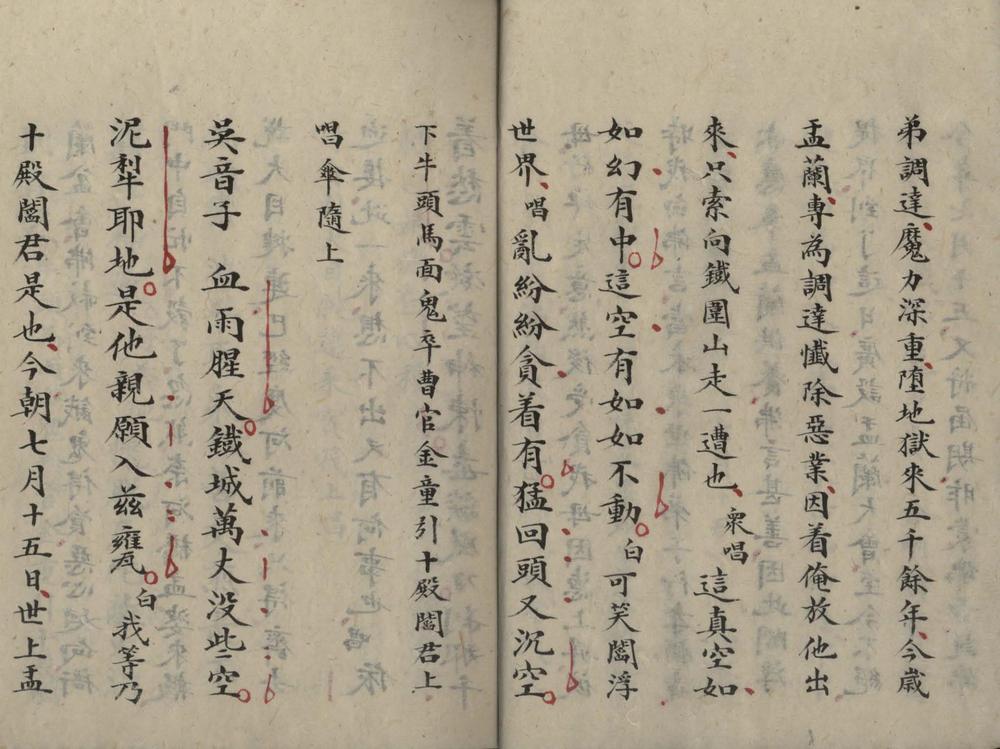 弟調達魔力深重墮地獄來五千餘年今歲
盂蘭專為調達懺除惡業因着俺放他出
來只索向鐵圍山走一遭也衆唱這真空如
如幻有中這空有如如不動白可笑閻浮
世界唱亂紛紛貪着有猛回頭又沉空
下牛頭馬面鬼卒曹官金童引十殿閻君上
唱傘隨上
吳音子 血雨腥天鐵城萬丈没些空
泥犁耶地是他親願入兹甕白我等乃
十殿閻君是也今朝七月十五日世上盂